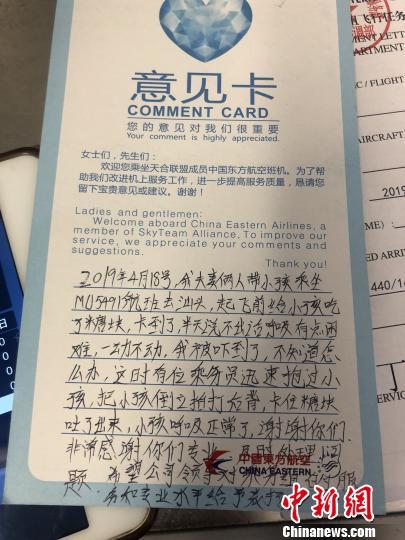 意见卡
COMMENT CARD
您的意见对我们很重要
Your comment is highly appreciated.
女士们，先生们：
欢迎您乘坐天合联盟成员中国东方航空班机。为了帮
助我们改进机上服务工作，进一步提高服务质量，恳请您
留下宝贵意见或建议。谢谢！
Ladies and gentlemen:
Welcome aboard China Eastern Airlines, a
member of SkyTeam Alliance. To improve our
service, we appreciate your comments and
suggestions.
Thank you!
2019年4月18号，我夫妻俩人带小孩乘坐
MU5491航班去汕头，起飞前给小孩吃
了糖块，卡到了，半天说不出话呼吸有点困
难，一动不动，我被吓到了，不知道怎
么办，这时有位乘务员迅速抱过小
孩，把小孩倒立拍打后背，卡住糖块
吐了出来，小孩呼吸正常了，谢谢你们，
非常感谢你们专业
题。希望公司领导对
和专业水平给予
中國東方航空
CHINA EASTERN
飞行任务
EC / FLIGHT
AIRCRAFT
2019
ED ARRI
440/14
中新网
www.chinanews.com